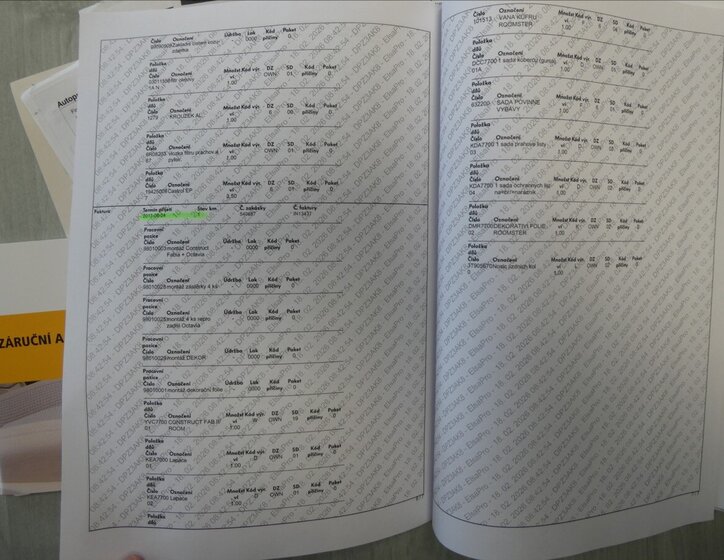 Číslo Označení Údržba Lak Kód příčiny Paket
98090908 Základní čištění vozu zdarma 0000 0
Položka dílů
Číslo Označení Množství Kód výr. DZ SD Kód příčiny Paket
filtr olejový 1,00 OWN 01 0
14 N
Položka dílů
Číslo Označení Množství Kód výr. DZ SD Kód příčiny Paket
1279 KROUŽEK AL. 1,00 6 00 0
Položka dílů
Číslo Označení Množství Kód výr. DZ SD Kód příčiny Paket
Vložka filtru prachov.a pylov. 1,00 OWN 01 0
67
Položka dílů
Číslo Označení Množství Kód výr. DZ SD Kód příčiny Paket
19425008 Castrol EP 3,50 6 01 0
Faktura Termín přijetí Stav km Č. zakázky Č. faktury
IN13437
Pracovní pozice
Číslo Označení Údržba Lak Kód příčiny Paket
98010003 montáž Construct Fabia + Octavia 0000 0
Pracovní pozice
Číslo Označení Údržba Lak Kód příčiny Paket
98010028 montáž zástěrky 4 ks 0000 0
Pracovní pozice
Číslo Označení Údržba Lak Kód příčiny Paket
98010025 montáž 4 ks repro zadní Octavia 0000 0
Pracovní pozice
Číslo Označení Údržba Lak Kód příčiny Paket
98010029 montáž DEKOR 0000 0
Pracovní pozice
Číslo Označení Údržba Lak Kód příčiny Paket
98010001 montáž dekorační folie 0000 0
Položka dílů
Číslo Označení Množství Kód výr. DZ SD Kód příčiny Paket
YVC7700 CONSTRUCT FAB II/ ROOM 1,00 W OWN 19 0
01
Položka dílů
Číslo Označení Množství Kód výr. DZ SD Kód příčiny Paket
KEA7700 Lapače 1,00 D OWN 01 0
01
Položka dílů
Číslo Označení Množství Kód výr. DZ SD Kód příčiny Paket
KEA7700 Lapače 1,00 D OWN 01 0
02
Položka dílů
Číslo Označení Množství Kód výr. DZ SD Kód příčiny Paket
101513 VANA KUFRU ROOMSTER 1,00 6 04 0
Položka dílů
Číslo Označení Množství Kód výr. DZ SD Kód příčiny Paket
DCC7700 1 sada koberců (guma) 1,00 OWN 0
01A
Položka dílů
Číslo Označení Množství Kód výr. DZ SD Kód příčiny Paket
632200 SADA POVINNÉ VÝBAVY 1,00 6 01 0
Položka dílů
Číslo Označení Množství Kód výr. DZ SD Kód příčiny Paket
KDA7700 1 sada prahové lišty 1,00 OWN 02 0
03
Položka dílů
Číslo Označení Množství Kód výr. DZ SD Kód příčiny Paket
KDA7700 1 sada ochranných lišt nárazník 1,00 OWN 02 0
04
Položka dílů
Číslo Označení Množství Kód výr. DZ SD Kód příčiny Paket
DMR7700 DEKORATIVÍ FOLIE ROOMSTER 1,00 K OWN 02 0
02
Položka dílů
Číslo Označení Množství Kód výr. DZ SD Kód příčiny Paket
3T9056700 Nosič jízdních kol 1,00 OWN 02 0
ZÁRUČNÍ A
DPZ3AK8 ElsaPro 18. 02. 2026 08:42:54